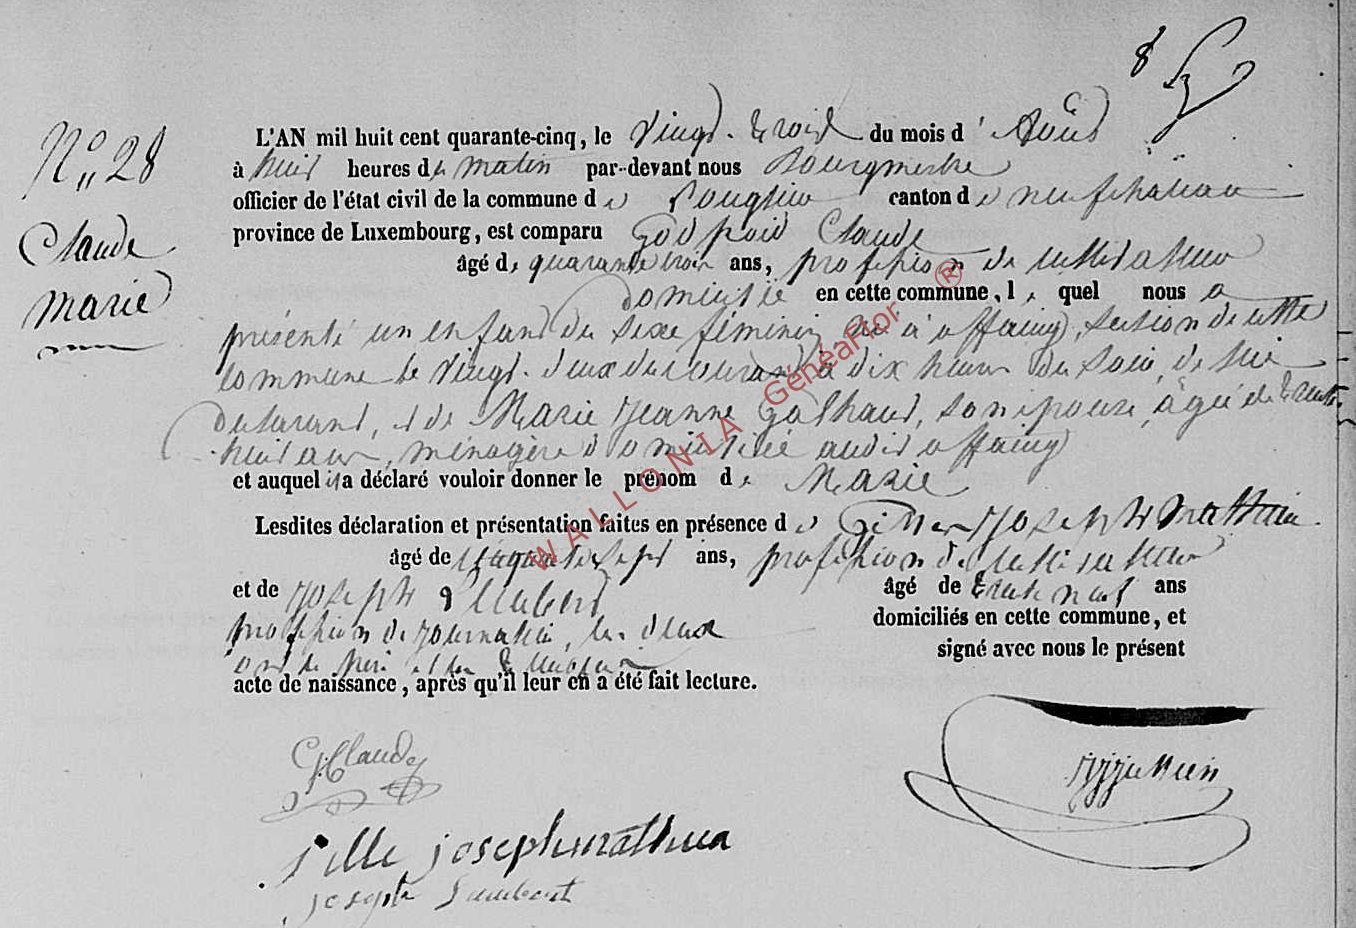 8
N° 28
Claude
Marie
L'AN mil huit cent quarante-cinq, le Vingt-trois du mois d'Août
à huit heures du matin par-devant nous Bourgmestre
officier de l'état civil de la commune de canton de neufchateau
province de Luxembourg, est comparu Godfroid Claude
âgé de quarante trois ans, profession de cultivateur
domicilié en cette commune, lequel nous a
présenté un enfant du sexe féminin né à offaing, section de cette
commune le Vingt-deux du courant à dix heures du soir, de lui
déclarant, et de Marie Jeanne son épouse, âgée de trente
huit ans, ménagère domiciliée audit offaing
et auquel il a déclaré vouloir donner le prénom de Marie
Lesdites déclaration et présentation faites en présence de Gille Joseph Mathieu
âgé de ans, profession de cultivateur
et de Joseph Lambert âgé de trente neuf ans
profession de journalier, les deux domiciliés en cette commune, et
ont le père et les témoins signé avec nous le présent
acte de naissance, après qu'il leur en a été fait lecture.
G. Claude
jille joseph mathieu
joseph Lambert
WALLONIA GénéaFlor ®